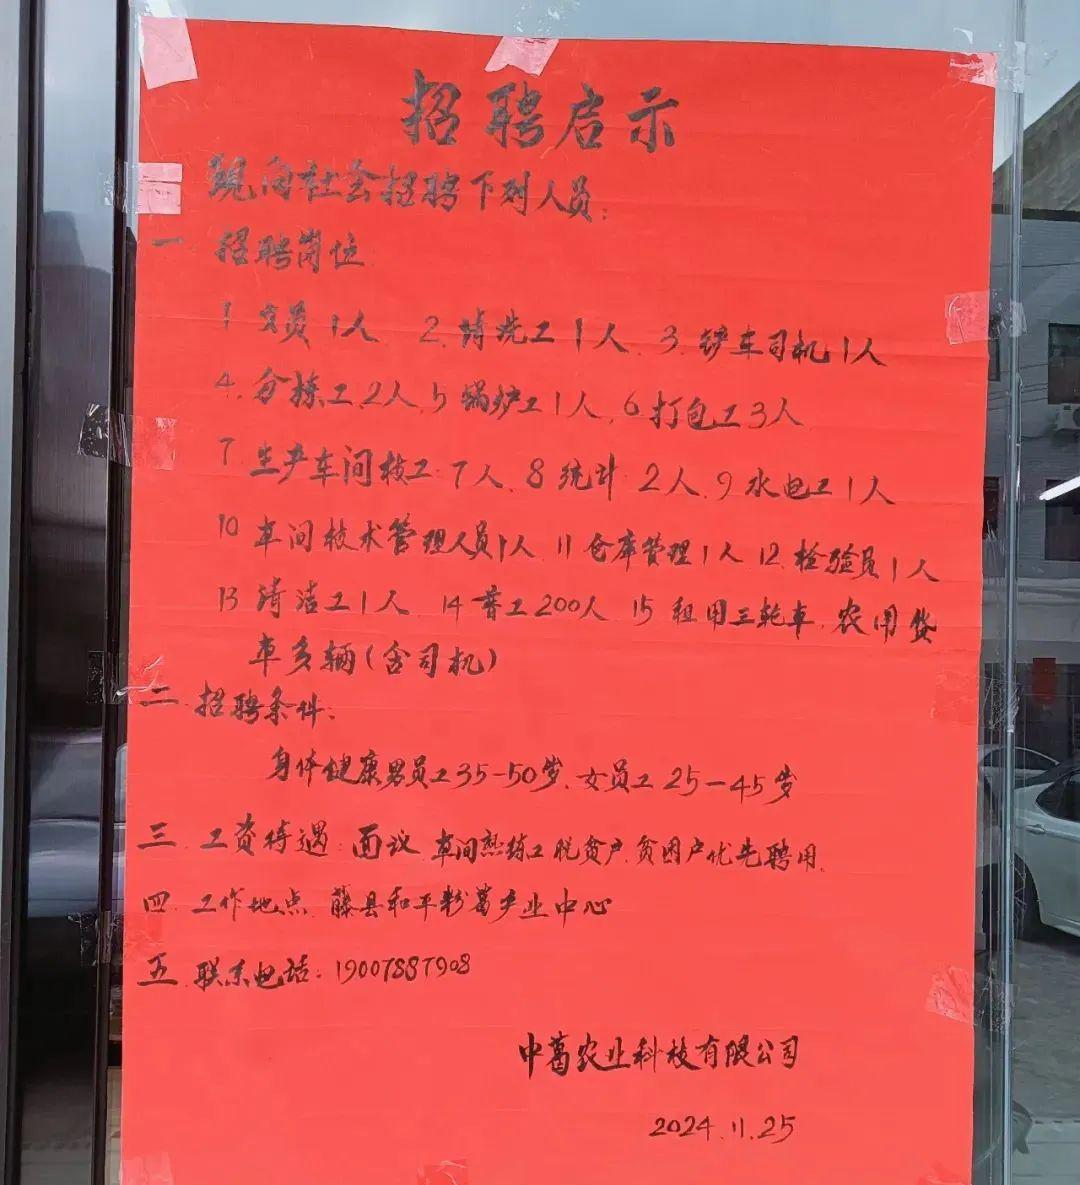 招聘启示
现向社会招聘下列人员:
一 招聘岗位
1 文员1人 2. 清洗工1人. 3. 铲车司机1人
4. 分拣工.2人, 5 锅炉工1人, 6 打包工3人
7. 生产车间技工: 7人. 8 统计: 2人, 9 水电工1人
10 车间技术管理人员1人. 11 仓库管理1人 12. 检验员1人
13 清洁工1人. 14 普工200人. 15 租用三轮车. 农用货
车多辆(含司机)
二 招聘条件:
身体健康男员工35-50岁. 女员工25-45岁
三. 工资待遇: 面议 车间熟练工 脱贫户. 贫困户优先聘用.
四. 工作地点. 藤县和平粉葛产业中心
五. 联系电话: 19007887908
中葛农业科技有限公司
2024.11.25